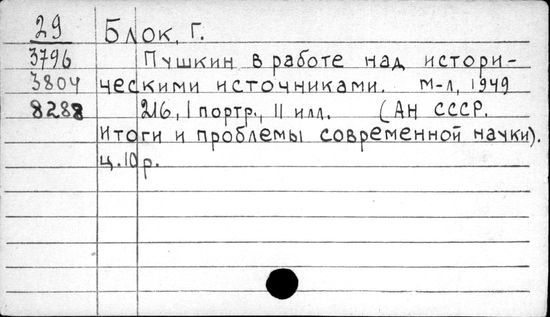 29 Блок, Г.
3796 Пушкин в работе над истори-
3804 ческими источниками. М-Л, 1949
8288 216, 1 портр., 11 илл. (АН СССР.
Итоги и проблемы современной науки).
ц. 10 р.